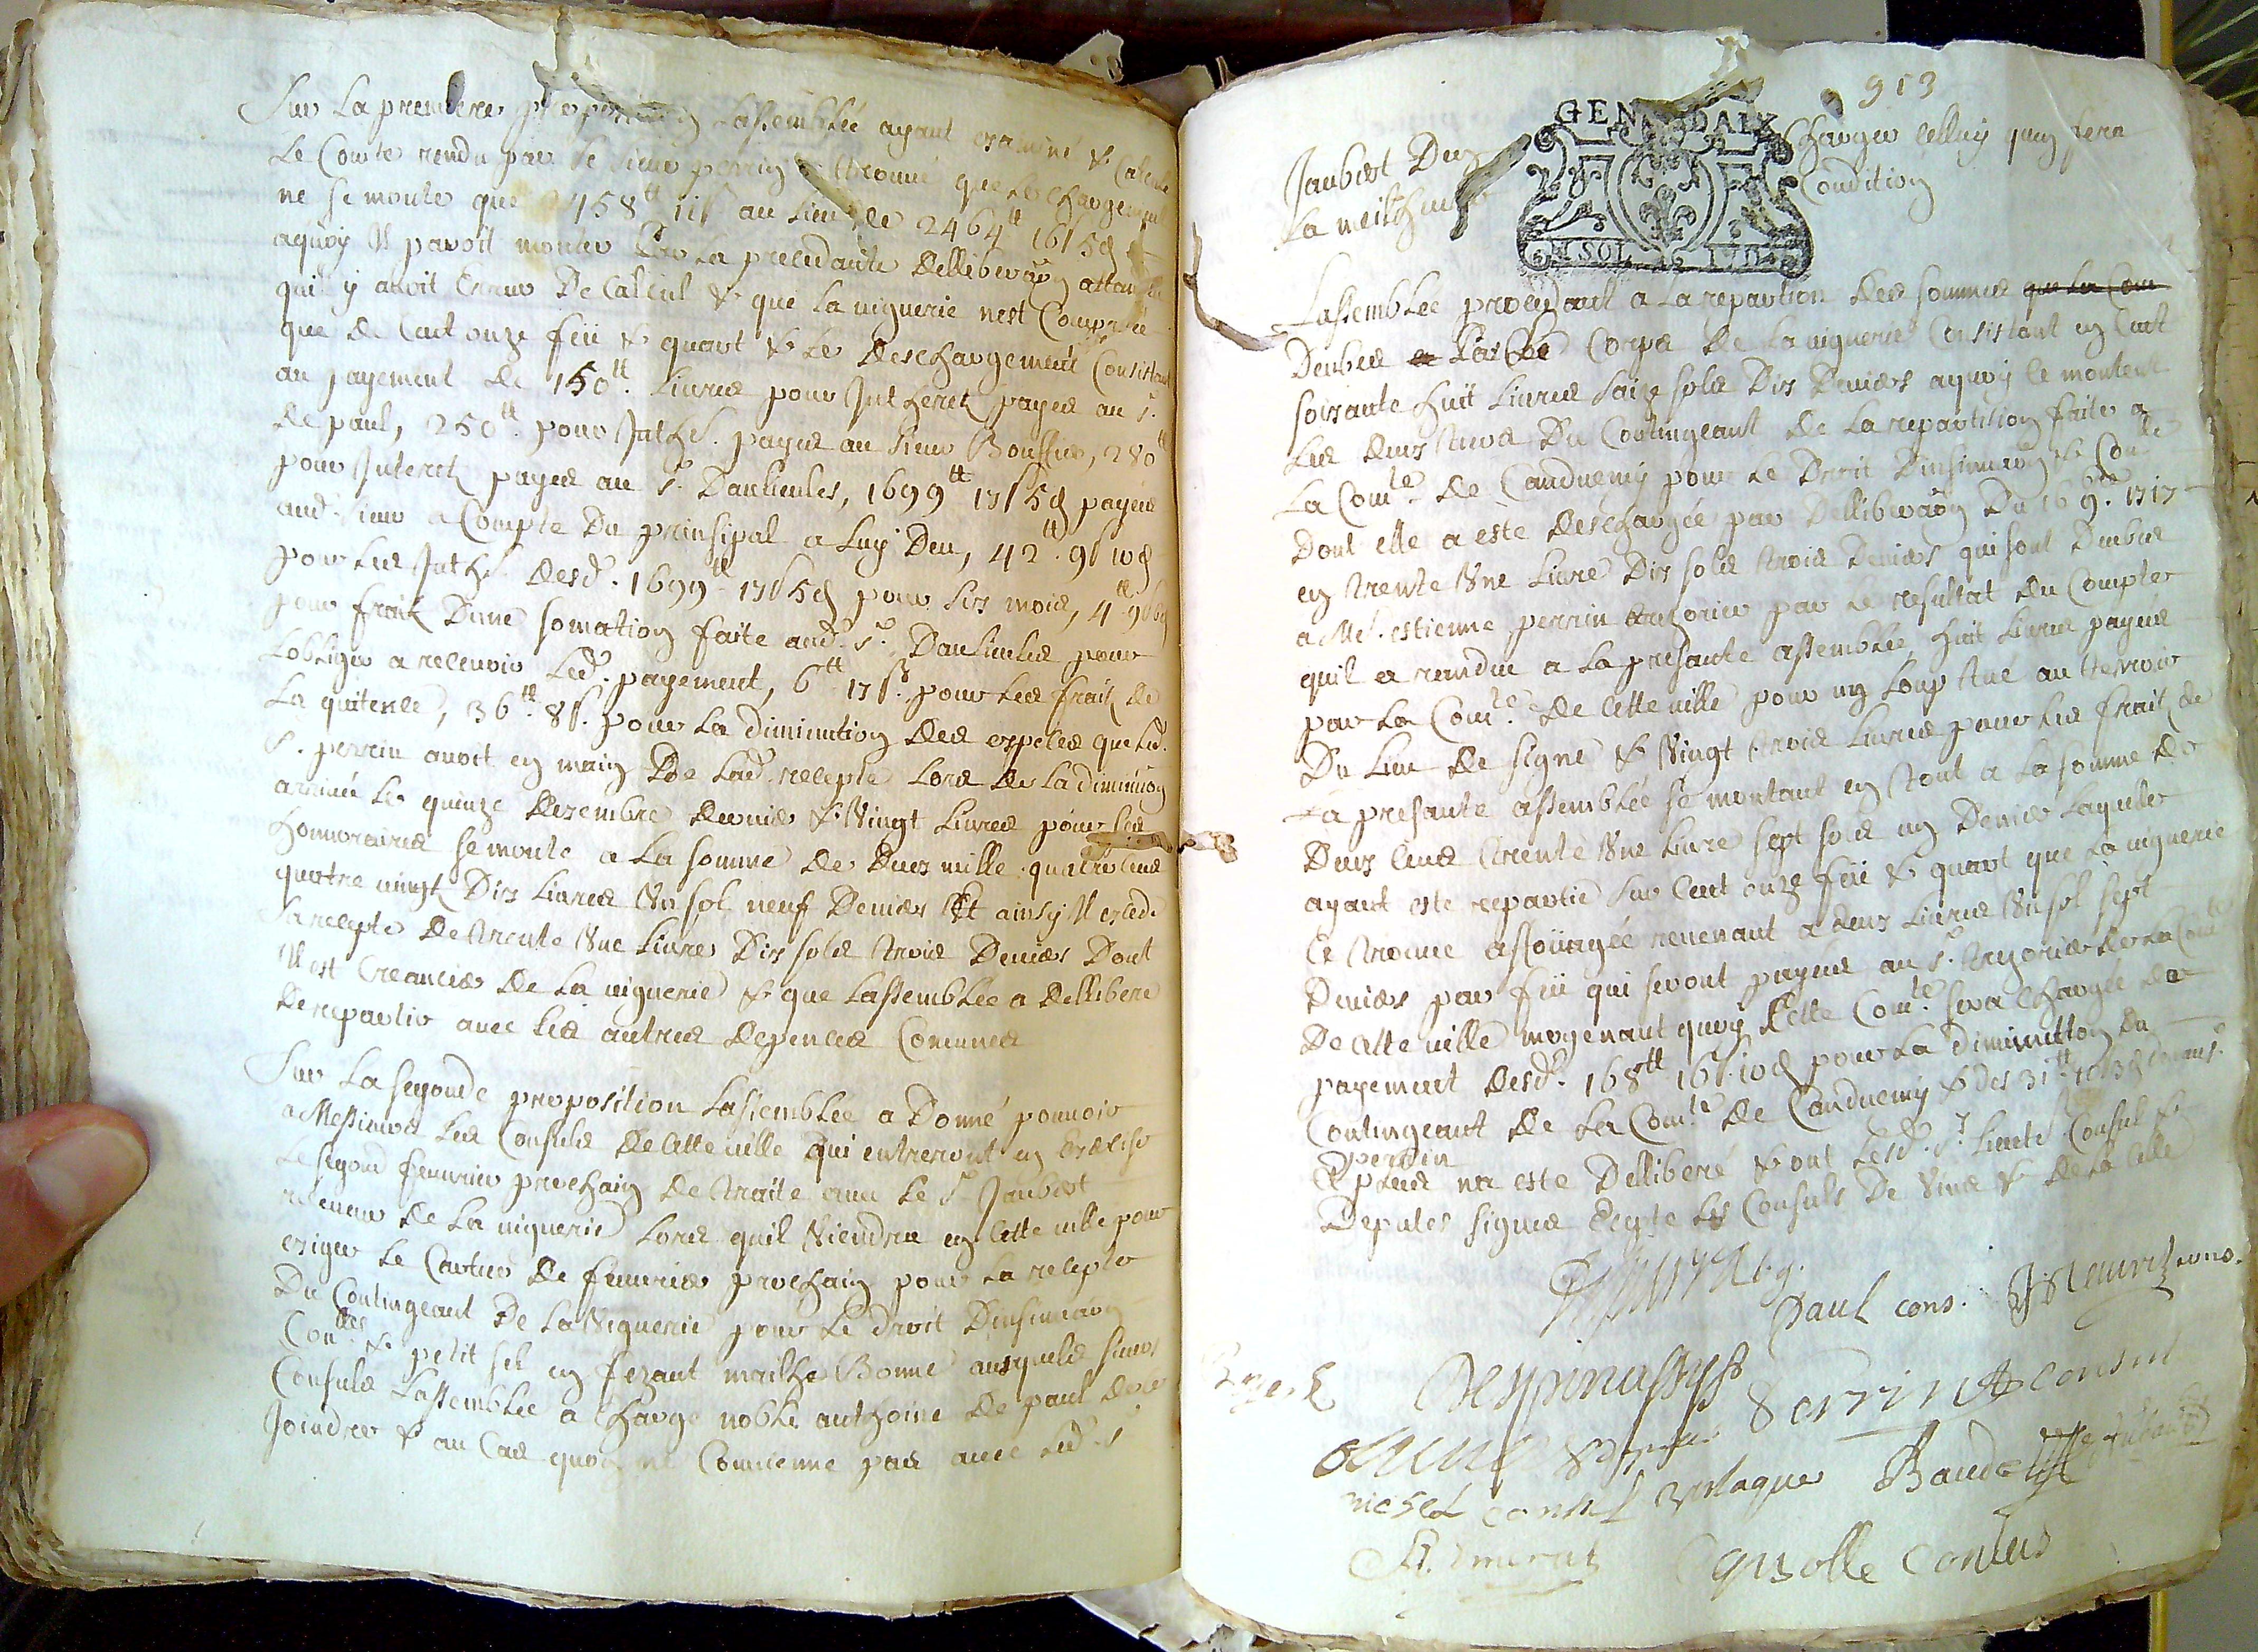 Sur La premiere proposition Lassemblée ayant examiné & Calculé
Le Compte rendu par le sieur perrin a trouué que le chargement
ne se monte que 2458tt 11s au lieu de 2464tt 16s 5d
aquoy Il paroit monter par La precedante delliberaõn attandu
quil y auoit Erreur De Calcul & que La viguerie nest Composée
que de Cent onze feü & quart & Le deschargement Consistant
au payement de 150tt Liures pour Intherets payes au sr.
de paul, 250tt pour Inthes. payes au sieur Bousquet, 280tt
pour Interets payes au sr. Dantieules, 1699tt 17s 5d payees
aud. sieur a Compte Du prinsipal a Luy Deu, 42tt 9s 10d
pour Les Inthes. desd. 1699tt 17s 5d pour six mois, 4tt 9s 6d
pour fraits Dune somation faite aud. sr. pour
Lobliger a receuoir Led. payement, 6tt 17s pour Les fraits de
La quitence, 36tt 8s. pour La diminution des especes que Led.
sr. perrin auoit en main De Lad. recepte Lors de La diminuõn
arriuée Le quinze dezembre dernier & Vingt Liures pour ses
honnoraires se monte a La somme de deux mille quatre cens
quatre vingts Dix Liures Vn sol neuf Deniers Et ainsy Il excede
La recepte de trente Vne Liures Dix sols trois Deniers Dont
Il est Creancier de La viguerie & que Lassemblée a dellibere
de repartir auec Les autres depences Communes
Sur La segonde proposition Lassemblée a Donné pouuoir
a Messieurs Les Consuls de Cette ville qui entreront en exercise
Le segond feurier prochain de traite auec le sr Jaubert
receueur de La viguerie Lors quil Viendra en Cette ville pour
exiger Le Cartier de feurier prochain pour La recepte
Du Contingeant De La Viguerie pour Le droit Dinsinuaõn
Conlles & petit sel en fezant meilhe Bonne ausquels sieurs
Consuls Lassemblée a charge noble anthoine de paul de se
Joindre & au Cas quon ne Conuienne pas auec Led. sr
913
GEN DAIX
M SOL
Jaubert Den charger Celluy quy fera
La meilheure Condition
Lassemblée procedant a La repartion des sommes que La Com
Deubes a Par Le Corps de La viguerie Consistant en Cent
soixante huit Liures saize sols Dix Deniers aquoy se montent
Les deux tiers Du Contingeant de La repartition faite a
La Comté. de Canduemy pour Le Droit Dinsinuaõn & Conlle
Dont elle a este deschargée par Delliberaõn Du 16 9bre 1717
en trente Vne Liure Dix sols trois Deniers qui sont Deubes
a Me. estienne perrin trezorier par Le resultat du Compte
quil a randue a La presante assemblée, huit Liures payees
par La Comté. de Cette ville pour un Loup tue au terroir
Du Lieu de signe & Vingt trois Liures pour Les fraits de
La presante assemblée se montant en tout a La somme de
Deux Cens trente Vne Liure sept sols un Denier Laquelle
ayant este repartie sur Cent onze feü & quart que La viguerie
Ce trouue affoüagée reuenant a deux Liures Vn sol sept
Deniers par feü qui seront payees au sr. trezorier de La Comté
De Cette ville moyenant quoy Cette Comté. sera chargée de
payement desd. 168tt 16s. 10d pour La diminution du
Contingeant de La Comté. de Canduemy & des 31tt 10s 3d
perrin
& plus na este Delliberé & ont Lesd. srs. Consul &
Deputes signes Exepte Les Consuls De Vins & de La Celle
Paul cons.
perrin consul
michel consul
Baude
consul